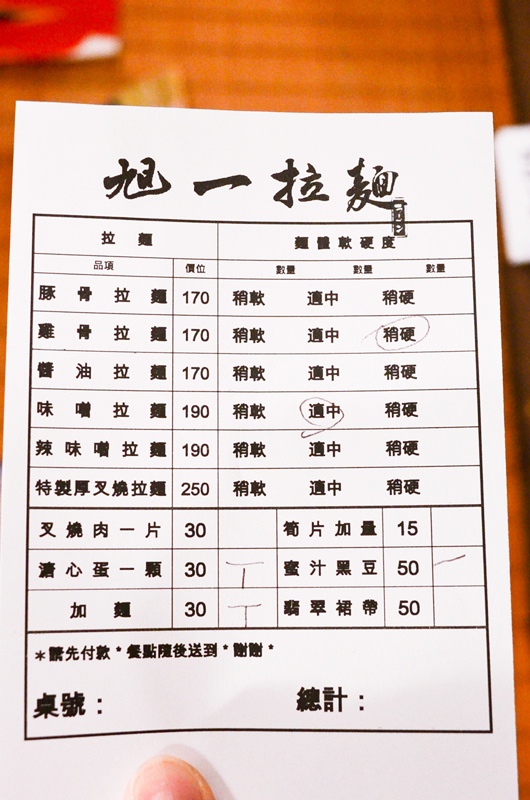 旭一拉麵
拉麵 麵體軟硬度
品項 價位 數量 數量 數量
豚骨拉麵 170 稍軟 適中 稍硬
雞骨拉麵 170 稍軟 適中 稍硬
醬油拉麵 170 稍軟 適中 稍硬
味噌拉麵 190 稍軟 適中 稍硬
辣味噌拉麵 190 稍軟 適中 稍硬
特製厚叉燒拉麵 250 稍軟 適中 稍硬
叉燒肉一片 30 筍片加量 15
溏心蛋一顆 30 丅 蜜汁黑豆 50 一
加麵 30 丅 翡翠裙帶 50
*請先付款*餐點隨後送到*謝謝*
桌號： 總計：